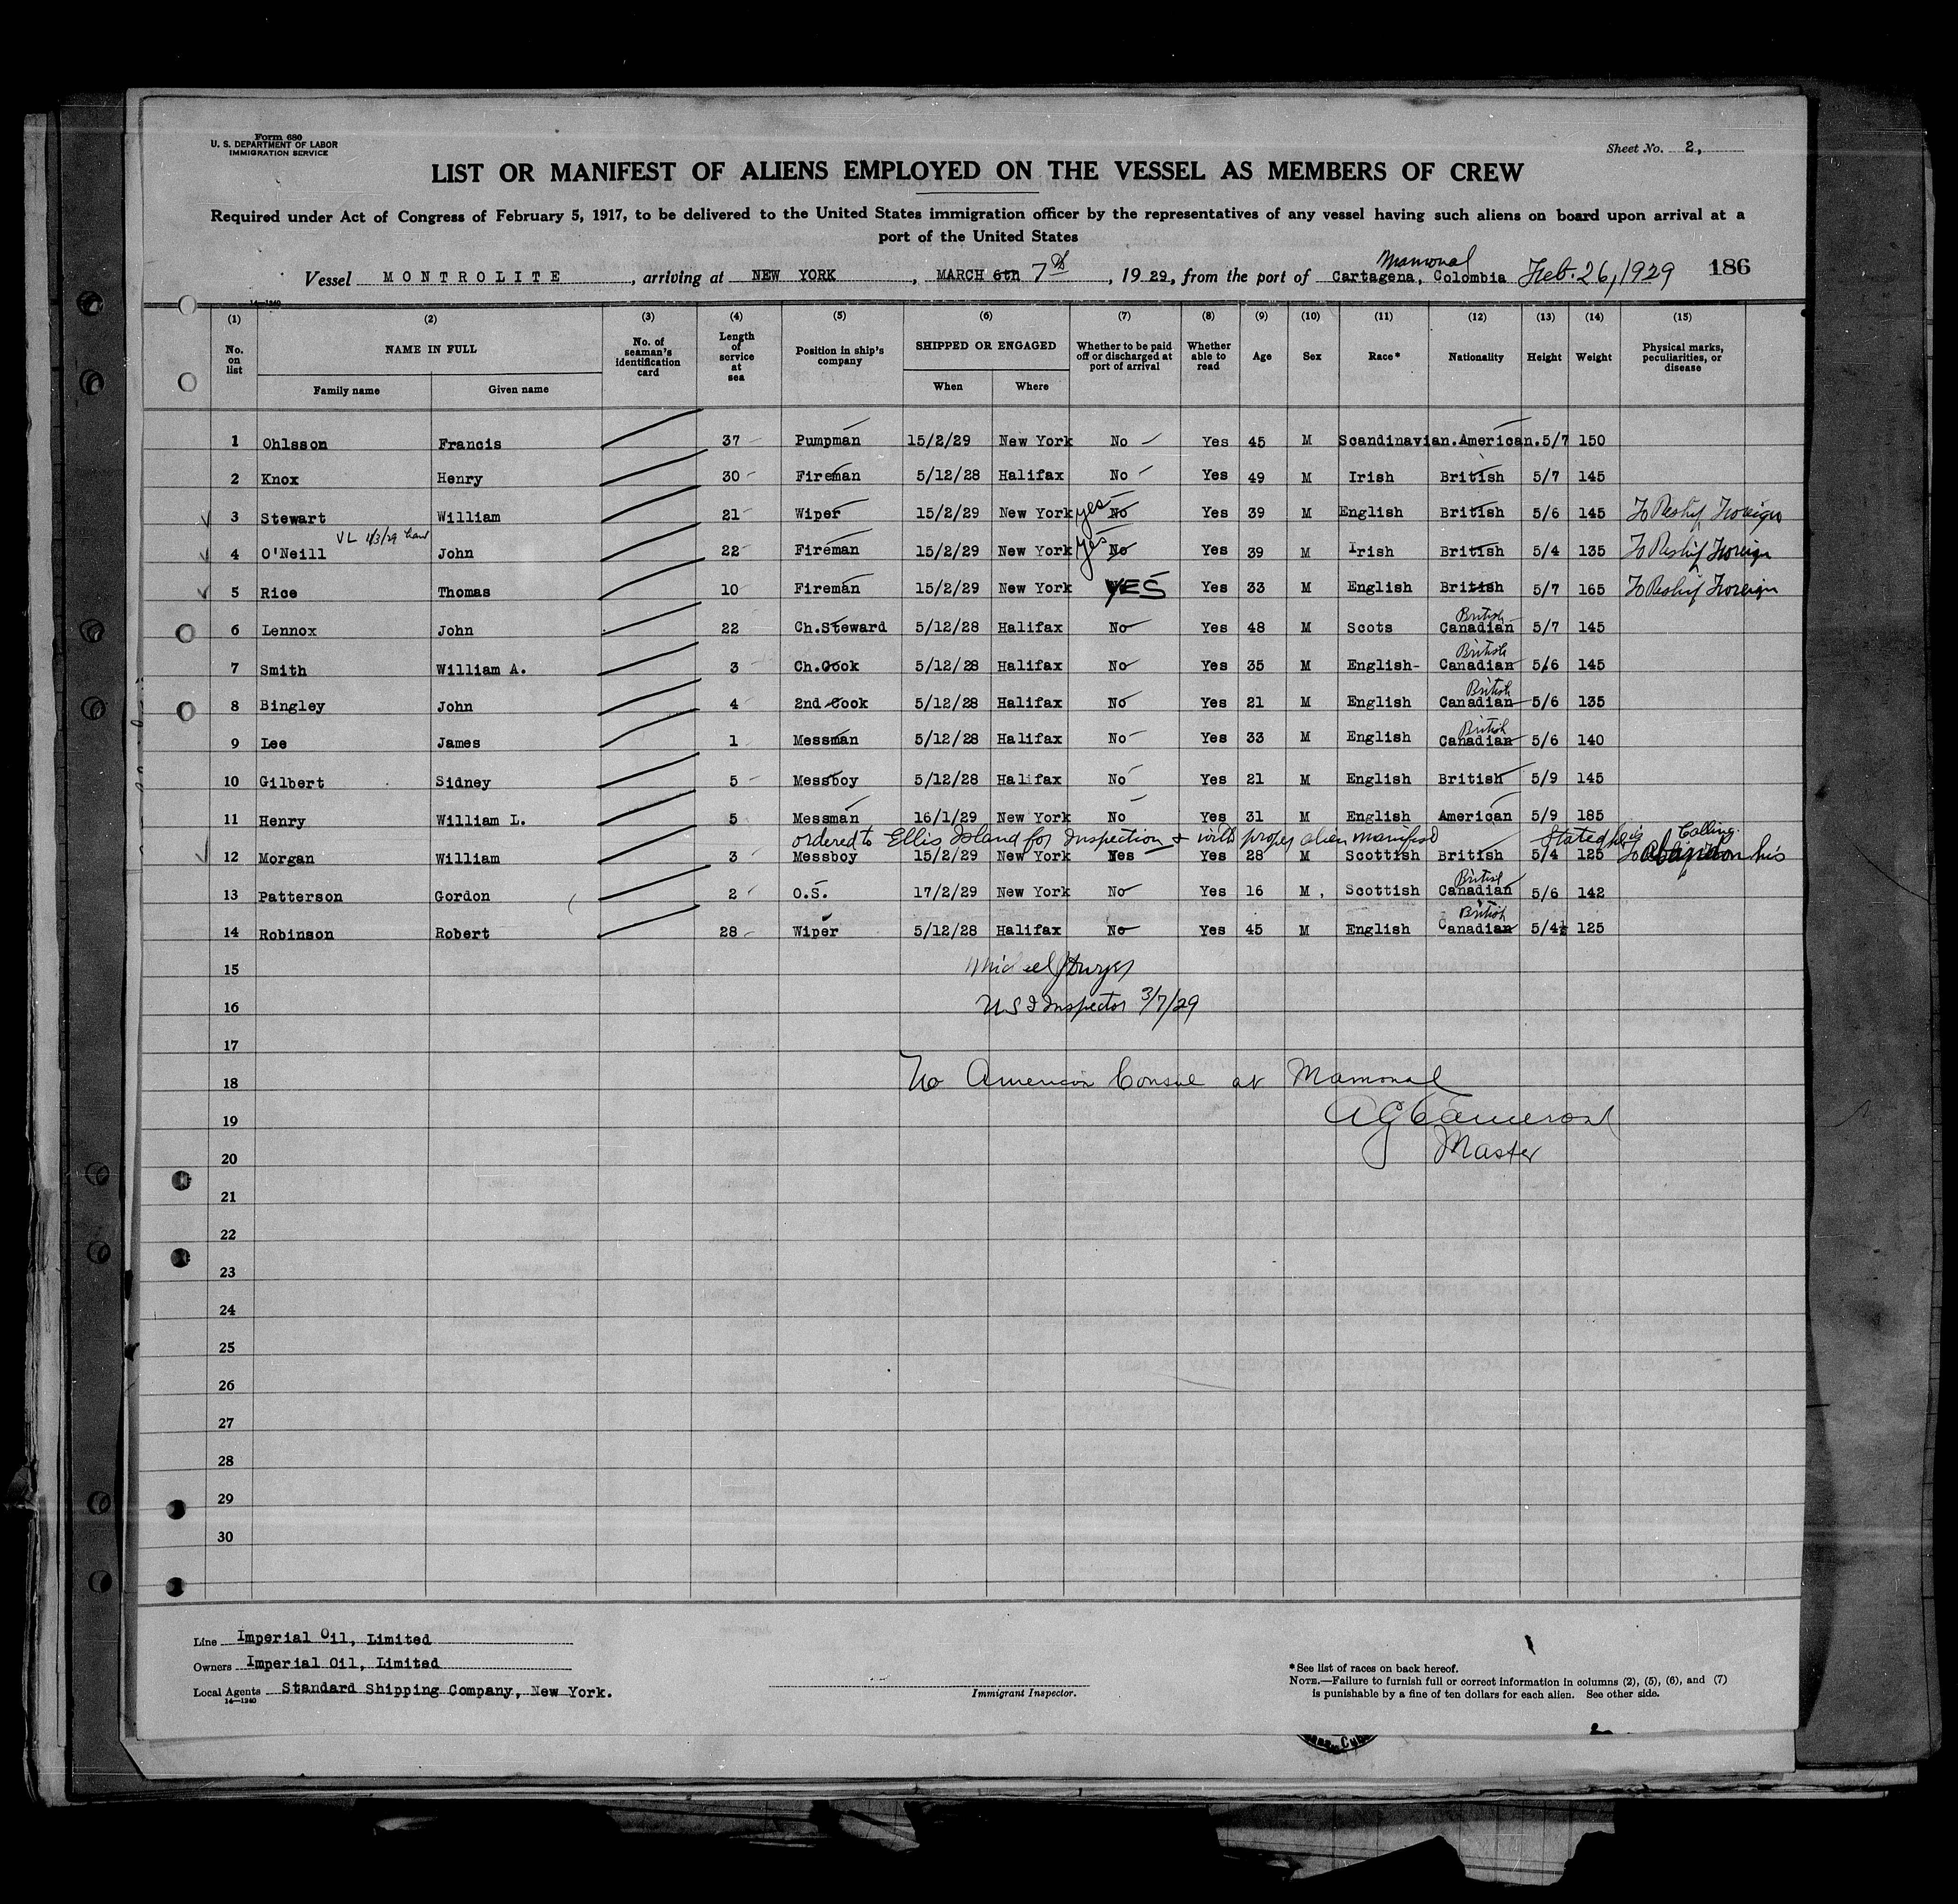 Form 680
U. S. DEPARTMENT OF LABOR
IMMIGRATION SERVICE
Sheet No. 2,
LIST OR MANIFEST OF ALIENS EMPLOYED ON THE VESSEL AS MEMBERS OF CREW
Required under Act of Congress of February 5, 1917, to be delivered to the United States immigration officer by the representatives of any vessel having such aliens on board upon arrival at a
port of the United States
Mamonal
Vessel MONTROLITE, arriving at NEW YORK, MARCH 6th 7th, 1929, from the port of Cartagena, Colombia Feb. 26, 1929 186
14—1240
(1) (2) (3) (4) (5) (6) (7) (8) (9) (10) (11) (12) (13) (14) (15)
No. on list NAME IN FULL No. of seaman's identification card Length of service at sea Position in ship's company SHIPPED OR ENGAGED Whether to be paid off or discharged at port of arrival Whether able to read Age Sex Race* Nationality Height Weight Physical marks, peculiarities, or disease
Family name Given name When Where
1 Ohlsson Francis 37 Pumpman 15/2/29 New York No Yes 45 M Scandinavian. American. 5/7 150
2 Knox Henry 30 Fireman 5/12/28 Halifax No Yes 49 M Irish British 5/7 145
3 Stewart William 21 Wiper 15/2/29 New York yes No Yes 39 M English British 5/6 145 To Reship Foreign
VL 4/3/29
4 O'Neill John 22 Fireman 15/2/29 New York yes No Yes 39 M Irish British 5/4 135 To Reship Foreign
5 Rice Thomas 10 Fireman 15/2/29 New York YES Yes 33 M English British 5/7 165 To Reship Foreign
6 Lennox John 22 Ch.Steward 5/12/28 Halifax No Yes 48 M Scots British Canadian 5/7 145
7 Smith William A. 3 Ch.Cook 5/12/28 Halifax No Yes 35 M English- British Canadian 5/6 145
8 Bingley John 4 2nd Cook 5/12/28 Halifax No Yes 21 M English British Canadian 5/6 135
9 Lee James 1 Messman 5/12/28 Halifax No Yes 33 M English British Canadian 5/6 140
10 Gilbert Sidney 5 Messboy 5/12/28 Halifax No Yes 21 M English British 5/9 145
11 Henry William L. 5 Messman 16/1/29 New York No Yes 31 M English American 5/9 185
ordered to Ellis Island for Inspection & with proper alien manifest Stated he is Calling.
12 Morgan William 3 Messboy 15/2/29 New York Yes Yes 28 M Scottish British 5/4 125 To abandon his
13 Patterson Gordon 2 O.S. 17/2/29 New York No Yes 16 M, Scottish British Canadian 5/6 142
14 Robinson Robert 28 Wiper 5/12/28 Halifax No Yes 45 M English British Canadian 5/4½ 125
15 Michael
16 US I Inspector 3/7/29
17
18 No American Consul at Mamonal
19 A G Cameron
20 Master
21
22
23
24
25
26
27
28
29
30
Line Imperial Oil, Limited
Owners Imperial Oil, Limited
Local Agents Standard Shipping Company, New York.
14—1240
Immigrant Inspector.
*See list of races on back hereof.
NOTE.—Failure to furnish full or correct information in columns (2), (5), (6), and (7)
is punishable by a fine of ten dollars for each alien. See other side.